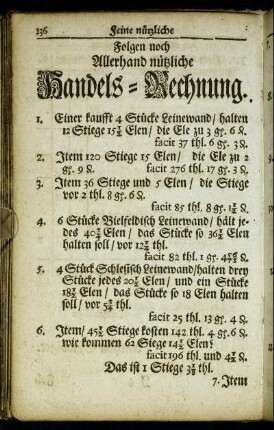 336 Feine nützliche
Folgen noch
Allerhand nützliche
Handels = Rechnung.
1. Einer kaufft 4 Stücke Leinewand / halten
12 Stiege 15 Elen / die Ele zu 3 gr. 6 ₰.
facit 37 thl. 6 gr. 3 ₰.
2. Item 120 Stiege 15 Elen / die Ele zu 2
gr. 9 ₰. facit 276 thl. 17 gr. 3 ₰.
3. Item 36 Stiege und 5 Elen / die Stiege
vor 2 thl. 8 gr. 6 ₰.
facit 85 thl. 8 gr. ₰.
4. 6 Stücke Bielfeldisch Leinewand / hält je-
des Elen / das Stücke so Elen
halten soll / vor thl.
facit 82 thl. 1 gr. ₰.
5. 4 Stück Schlesisch Leinewand / halten drey
Stücke jedes Elen / und ein Stücke
Elen / das Stücke so 18 Elen halten
soll / vor thl.
facit 25 thl. 13 gr. 4 ₰.
6. Item / Stiege kosten 142 thl. 4 gr. 6 ₰.
wie kommen 62 Siege Elen?
facit 196 thl. und ₰.
Das ist 1 Stiege thl.
7. Item